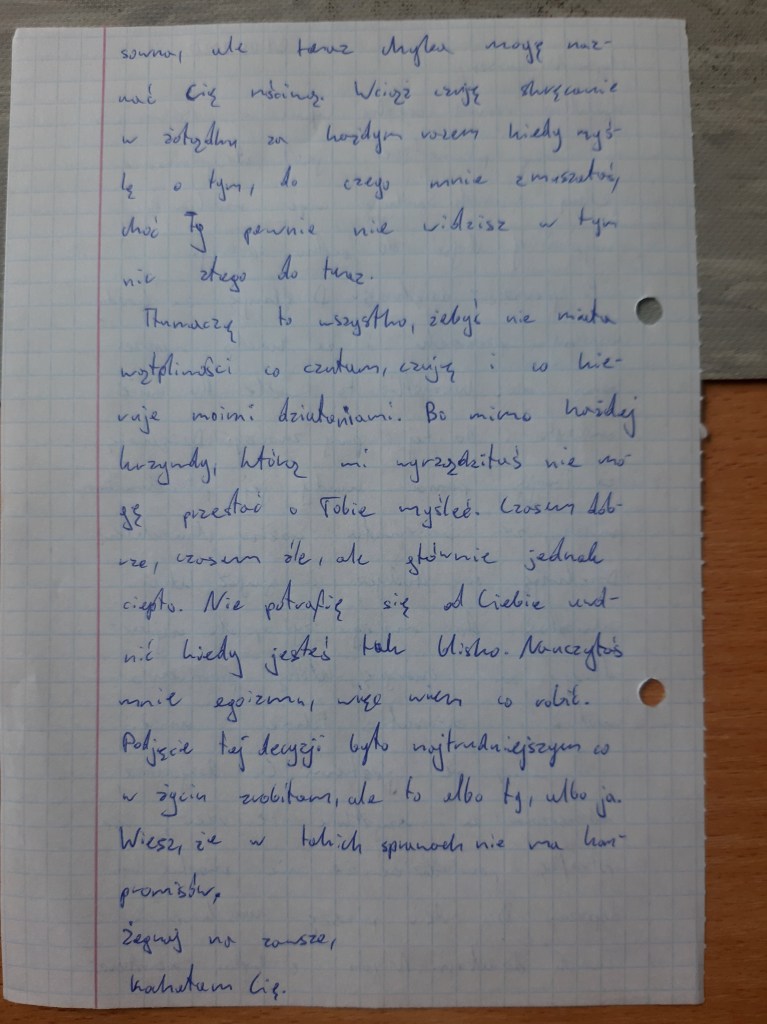 sowna, ale teraz chyba mogę naz-
wać Cię rośliną. Wciąż czuję skręcanie
w żołądku za każdym razem kiedy myś-
lę o tym, do czego mnie zmuszałaś,
choć Ty pewnie nie widzisz w tym
nic złego do teraz.
Tłumaczę to wszystko, żebyś nie miała
wątpliwości co czułam, czuję i co kie-
ruje moimi działaniami. Bo mimo każdej
krzywdy, którą mi wyrządziłaś nie mo-
gę przestać o Tobie myśleć. Czasem dob-
rze, czasem źle, ale głównie jednak
ciepło. Nie potrafię się od Ciebie uwol-
nić kiedy jesteś tak blisko. Nauczyłaś
mnie egoizmu, więc wiem co robić.
Podjęcie tej decyzji było najtrudniejszym co
w życiu zrobiłam, ale to albo ty, albo ja.
Wiesz, że w takich sprawach nie ma kom-
promisów.
Żegnaj na zawsze,
Kochałam Cię.